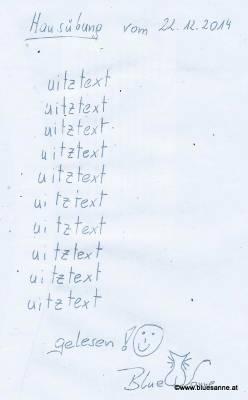 Hausübung vom 22.12.2014
uitztext
uitztext
uitztext
uitztext
uitztext
uitztext
uitztext
uitztext
uitztext
uitztext
gelesen !
Blue Sanne
©www.bluesanne.at